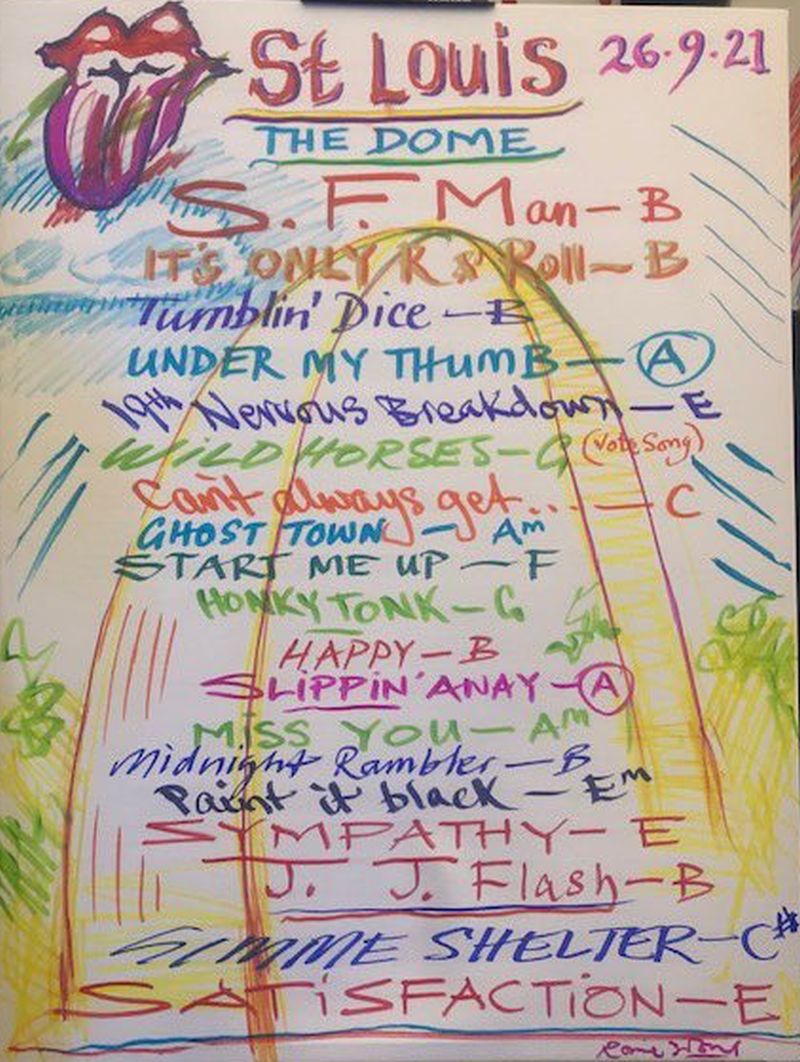 St Louis 26.9.21
THE DOME
S. F. Man - B
IT'S ONLY R &' Roll - B
Tumblin' Dice - B
UNDER MY THUMB - A
19th Nervous Breakdown - E
WILD HORSES - G (Vote Song)
Can't always get... - C
GHOST TOWN - Am
START ME UP - F
HONKY TONK - G
HAPPY - B
SLIPPIN' AWAY - A
MISS YOU - Am
Midnight Rambler - B
Paint it black - Em
SYMPATHY - E
J. J. Flash - B
GIMME SHELTER - C#
SATiSFACTiON - E